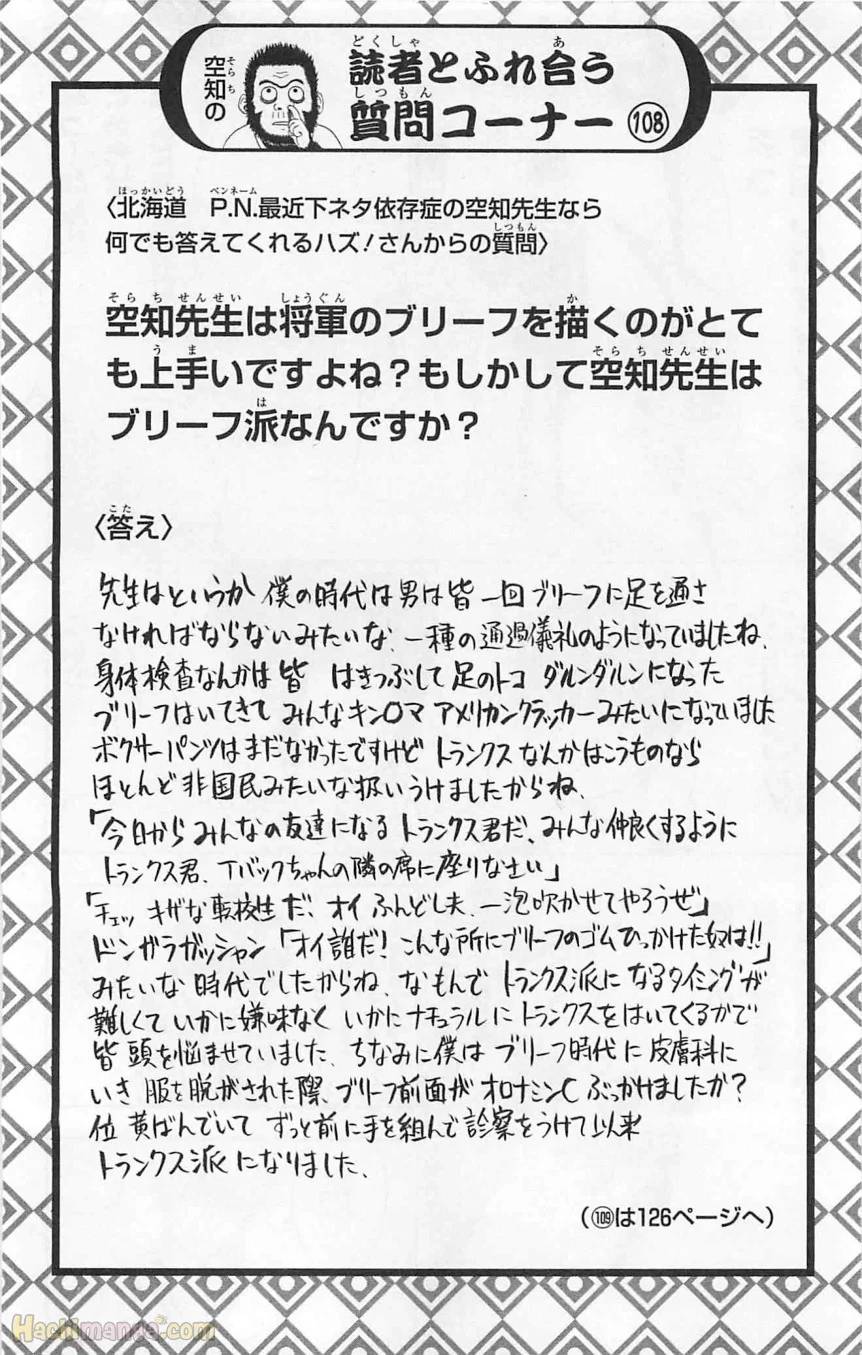 空知の
読者とふれ合う
質問コーナー 108
〈北海道 P.N.最近下ネタ依存症の空知先生なら
何でも答えてくれるハズ!さんからの質問〉
空知先生は将軍のブリーフを描くのがとて
も上手いですよね?もしかして空知先生は
ブリーフ派なんですか?
〈答え〉
先生はというか 僕の時代は男は皆 一回ブリーフに足を通さ
なければならないみたいな、一種の通過儀礼のようになっていましたね、
身体検査なんかは皆 はきつぶして足のトコ ダルンダルンになった
ブリーフはいてきて みんなキン○マ アメリカンクラッカーみたいになっていました
ボクサーパンツはまだなかったですけど トランクスなんかはこうものなら
ほとんど非国民みたいな扱いうけましたからね、
「今日からみんなの友達になるトランクス君だ、みんな仲良くするように
トランクス君、Tバックちゃんの隣の席に座りなさい」
「チェッ キザな転校生だ、オイ ふんどし夫、一泡吹かせてやろうぜ」
ドンガラガッシャン「オイ誰だ!こんな所にブリーフのゴムひっかけた奴は!!」
みたいな時代でしたからね、なもんで トランクス派になるタイミングが
難しくていかに嫌味なく いかにナチュラルにトランクスをはいてくるかで
皆頭を悩ませていました、ちなみに僕は ブリーフ時代に皮膚科に
いき 服を脱がされた際、ブリーフ前面が オロナミンCぶっかけましたか?
位 黄ばんでいて ずっと前に手を組んで診察をうけて以来
トランクス派になりました、
(109は126ページへ)
Hachimanga.com